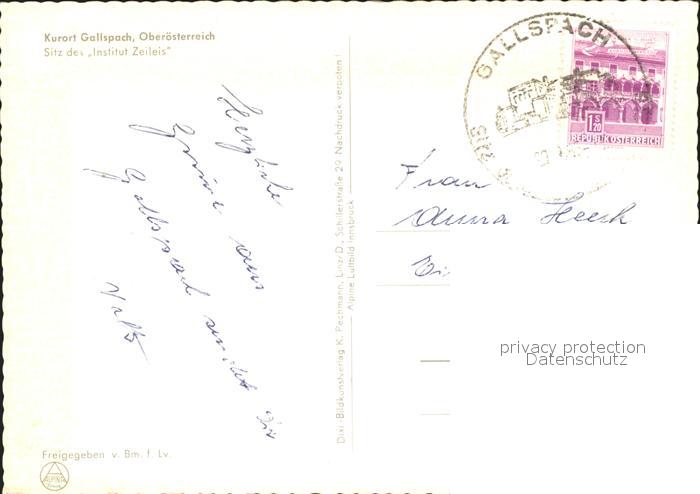 Kurort Gallspach, Oberösterreich
Sitz des „Institut Zeileis"
Herzliche
Grüsse aus
Gallspach sendet Dir
Freigegeben v. Bm. f. Lv.
ALPINA
Dixi-Bildkunstverlag K. Pechmann, Linz/D., Schillerstraße 29 Nachdruck verboten!
Alpine Luftbild Innsbruck
GALLSPACH
SITZ DES
1 S 20
REPUBLIK ÖSTERREICH
Frau
Anna Heesh
privacy protection
Datenschutz